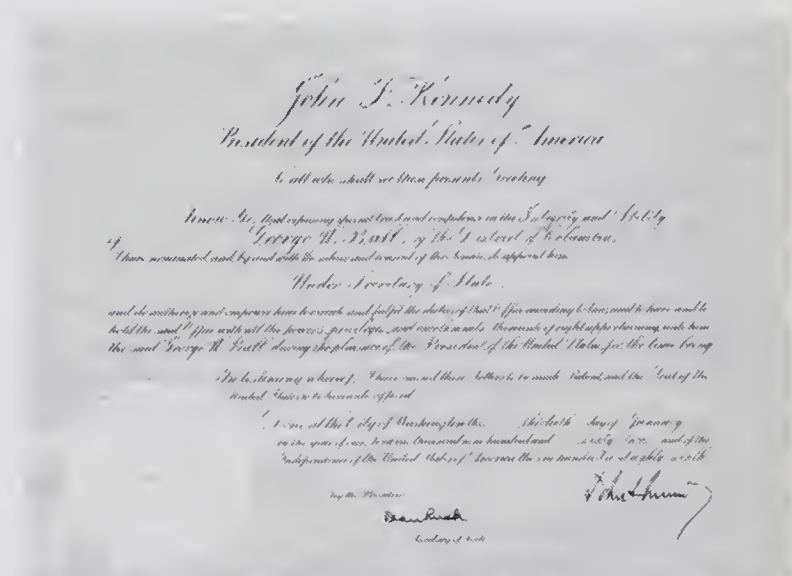 John F. Kennedy
President of the United States of America
To all who shall see these presents Greeting
Know Ye, that reposing special trust and confidence in the Integrity and Ability
of George W. Ball, of the District of Columbia,
I have nominated, and by and with the advice and consent of the Senate, do appoint him
Under Secretary of State
and do authorize and empower him to execute and fulfil the duties of that Office according to law, and to have and to
hold the said Office, with all the powers, privileges, and emoluments thereunto of right appertaining, unto him
the said George W. Ball during the pleasure of the President of the United States for the time being
In testimony whereof, I have caused these Letters to be made Patent, and the Seal of the
United States to be hereunto affixed
Done at the City of Washington this thirtieth day of January
in the year of our Lord one thousand nine hundred and sixty two and of the
Independence of the United States of America the one hundred and eighty sixth
By the President
Dean Rusk
Secretary of State